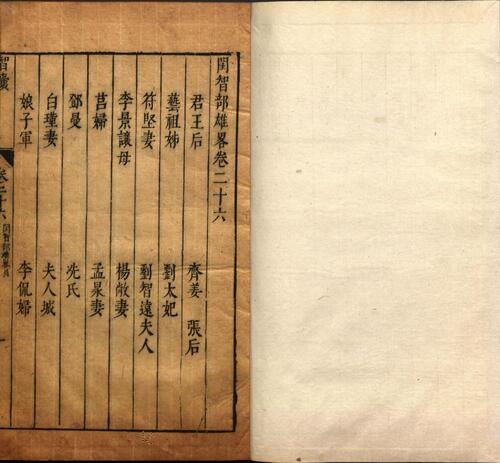 閨智部雄畧卷二十六
君王后 齊姜 張后
藝祖姊 劉太妃
苻堅妻 劉智遠夫人
李景讓母 楊敞妻
莒婦 孟昶妻
鄧曼 冼氏
白瑾妻 夫人城
娘子軍 李侃婦
智囊 卷二十六